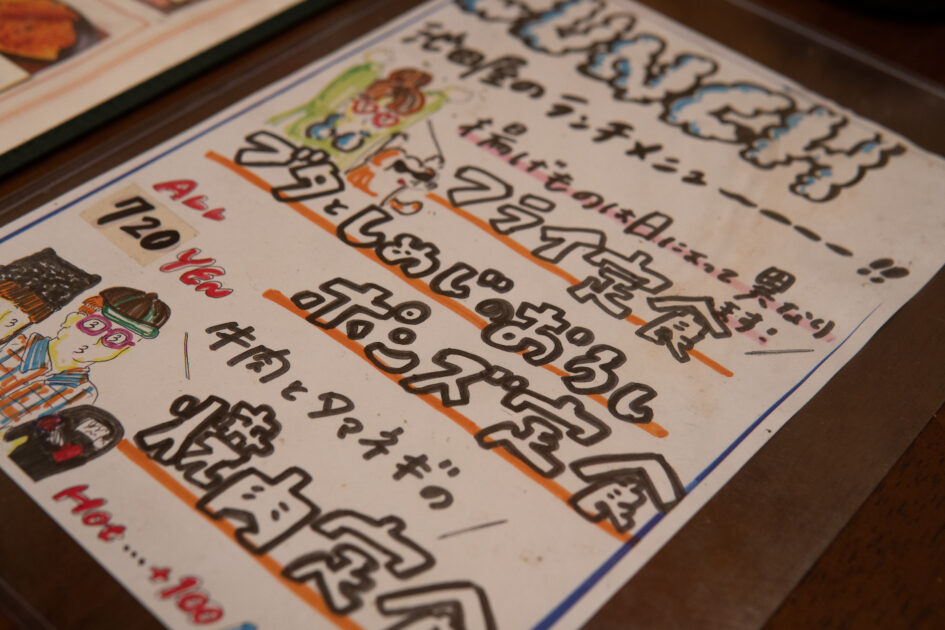 LUNCH
池田屋のランチメニュー――――!!
揚げものは日によって異なります!
フライ定食
ブタとしめじのおろし
ポンズ定食
ALL
720
YEN
牛肉とタマネギの
焼肉定食
HOT...+100